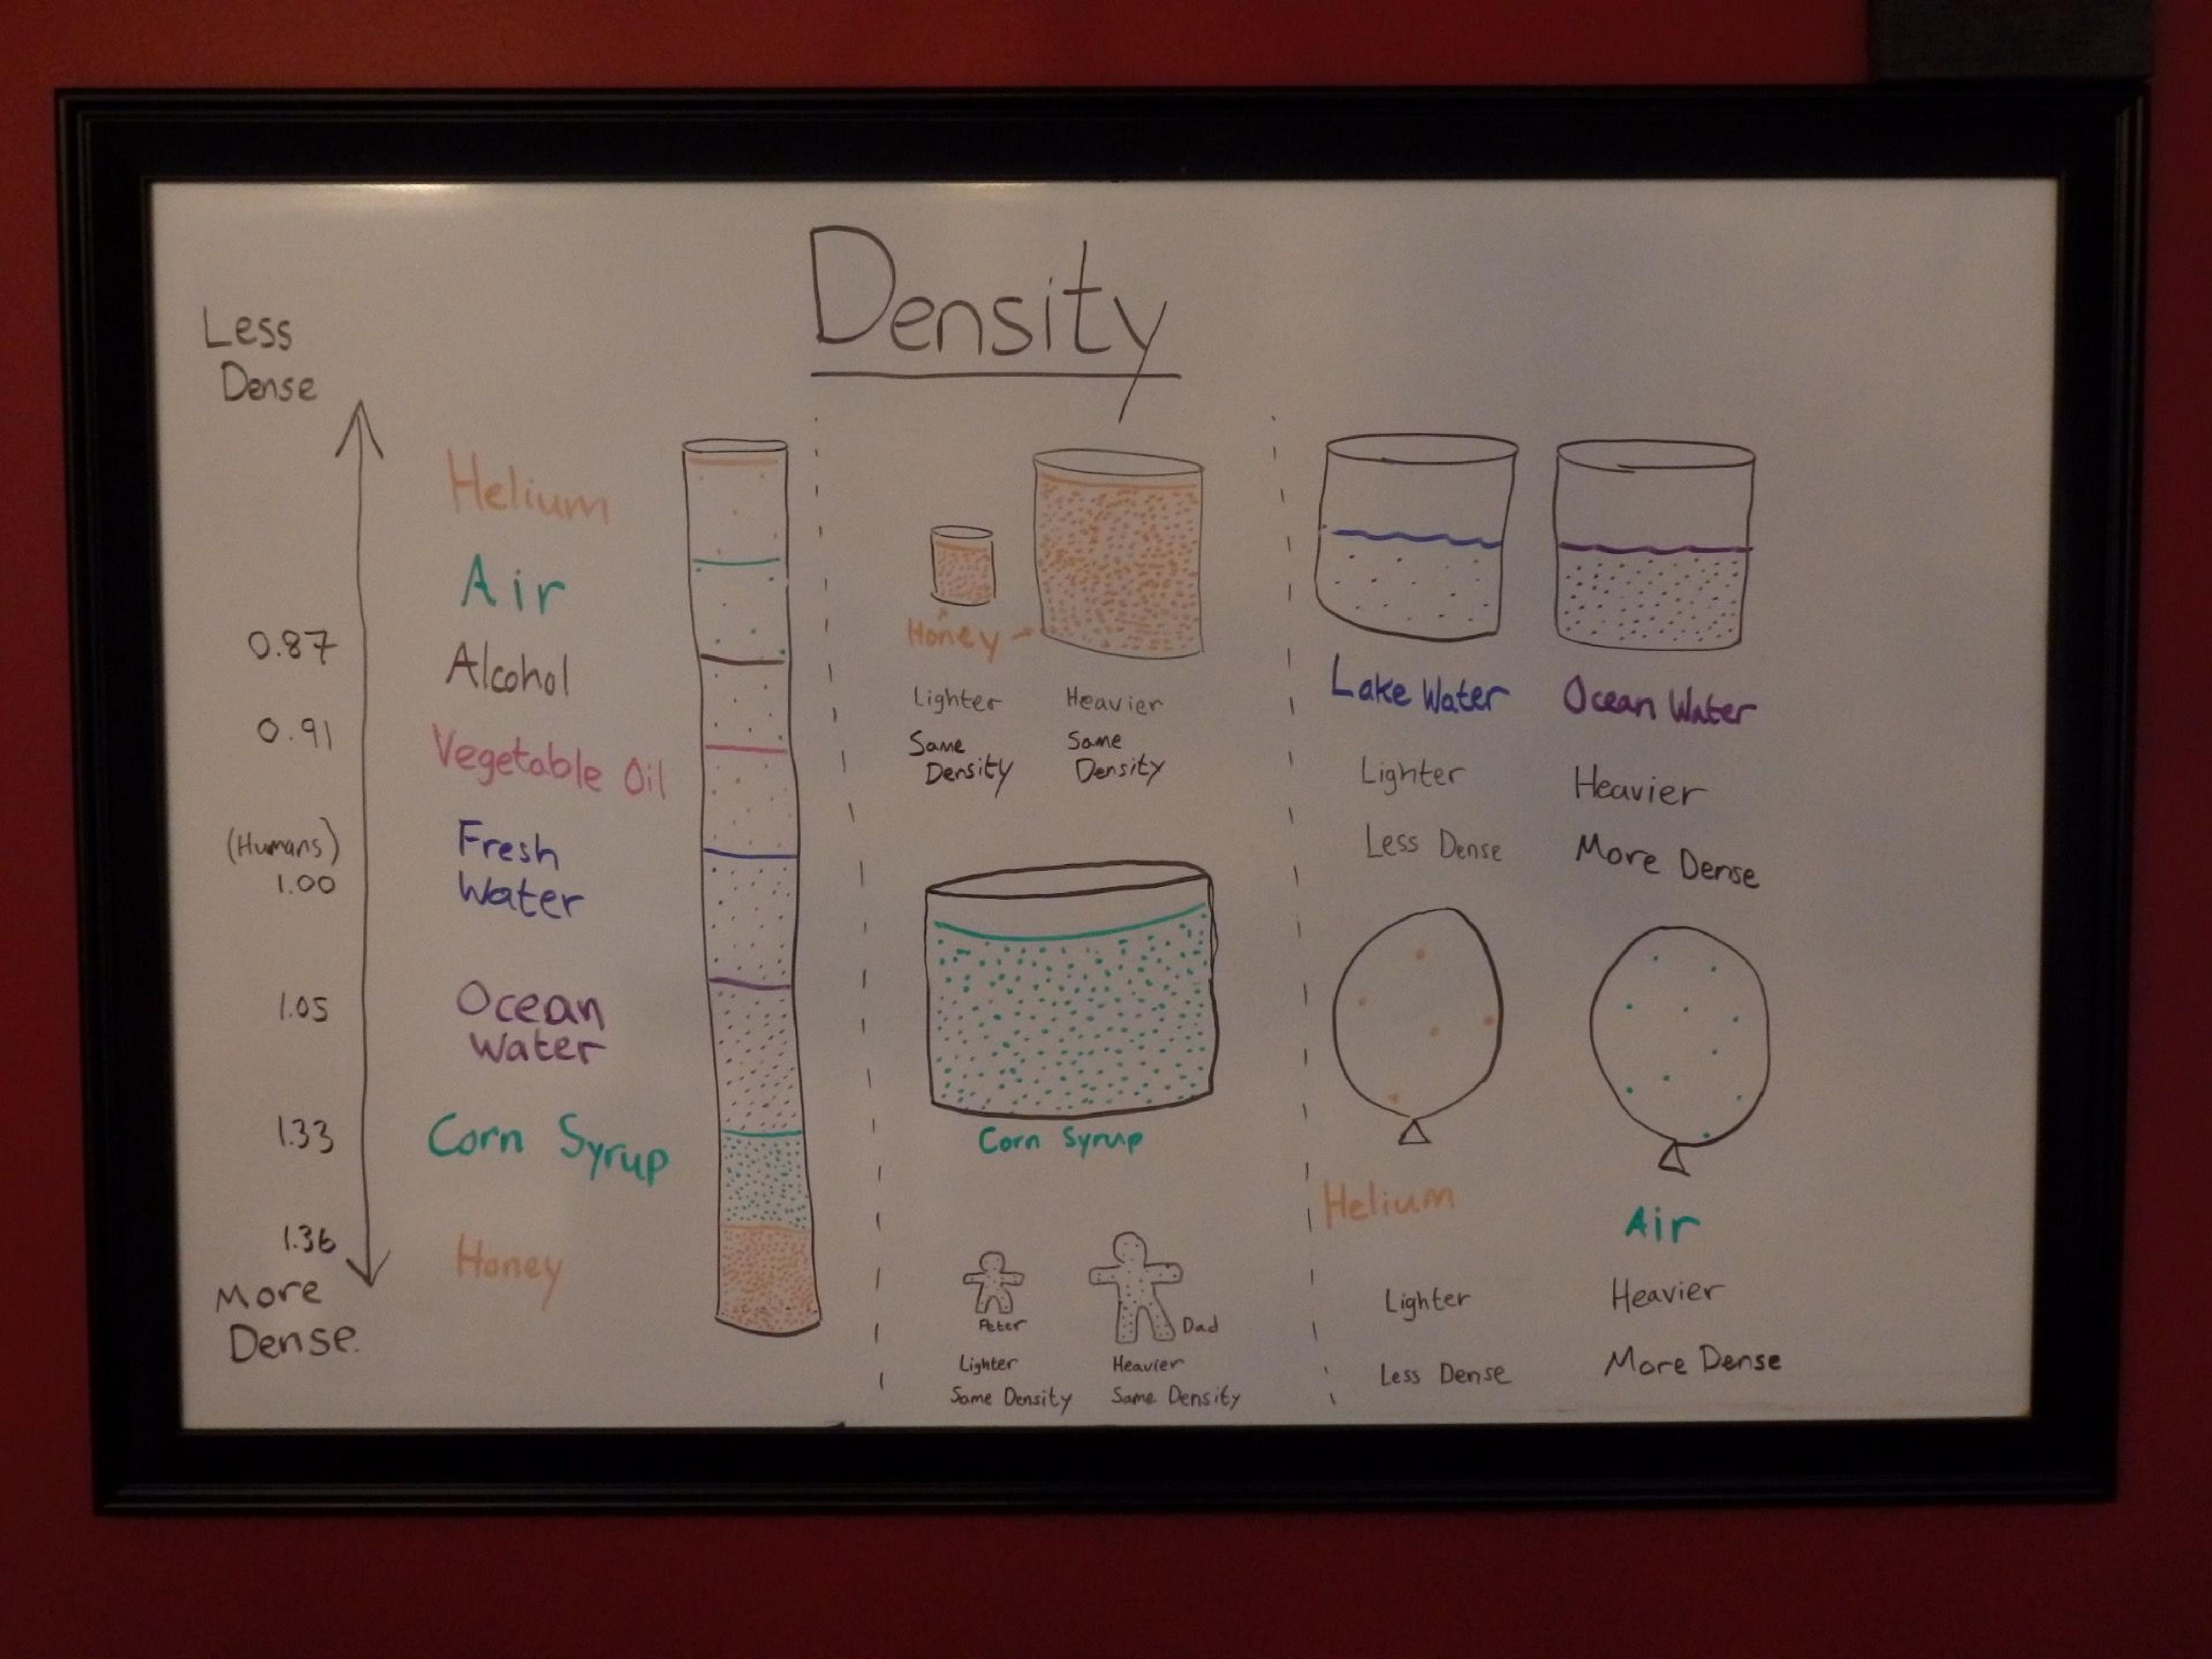 Density
Less
Dense
Helium
Air
0.87
Alcohol
0.91
Vegetable Oil
(Humans)
1.00
Fresh
Water
1.05
Ocean
Water
1.33
Corn Syrup
1.36
Honey
More
Dense.
Honey
Lighter
Same
Density
Heavier
Same
Density
Corn Syrup
Peter
Lighter
Same Density
Dad
Heavier
Same Density
Lake Water
Lighter
Less Dense
Ocean Water
Heavier
More Dense
Helium
Lighter
Less Dense
Air
Heavier
More Dense